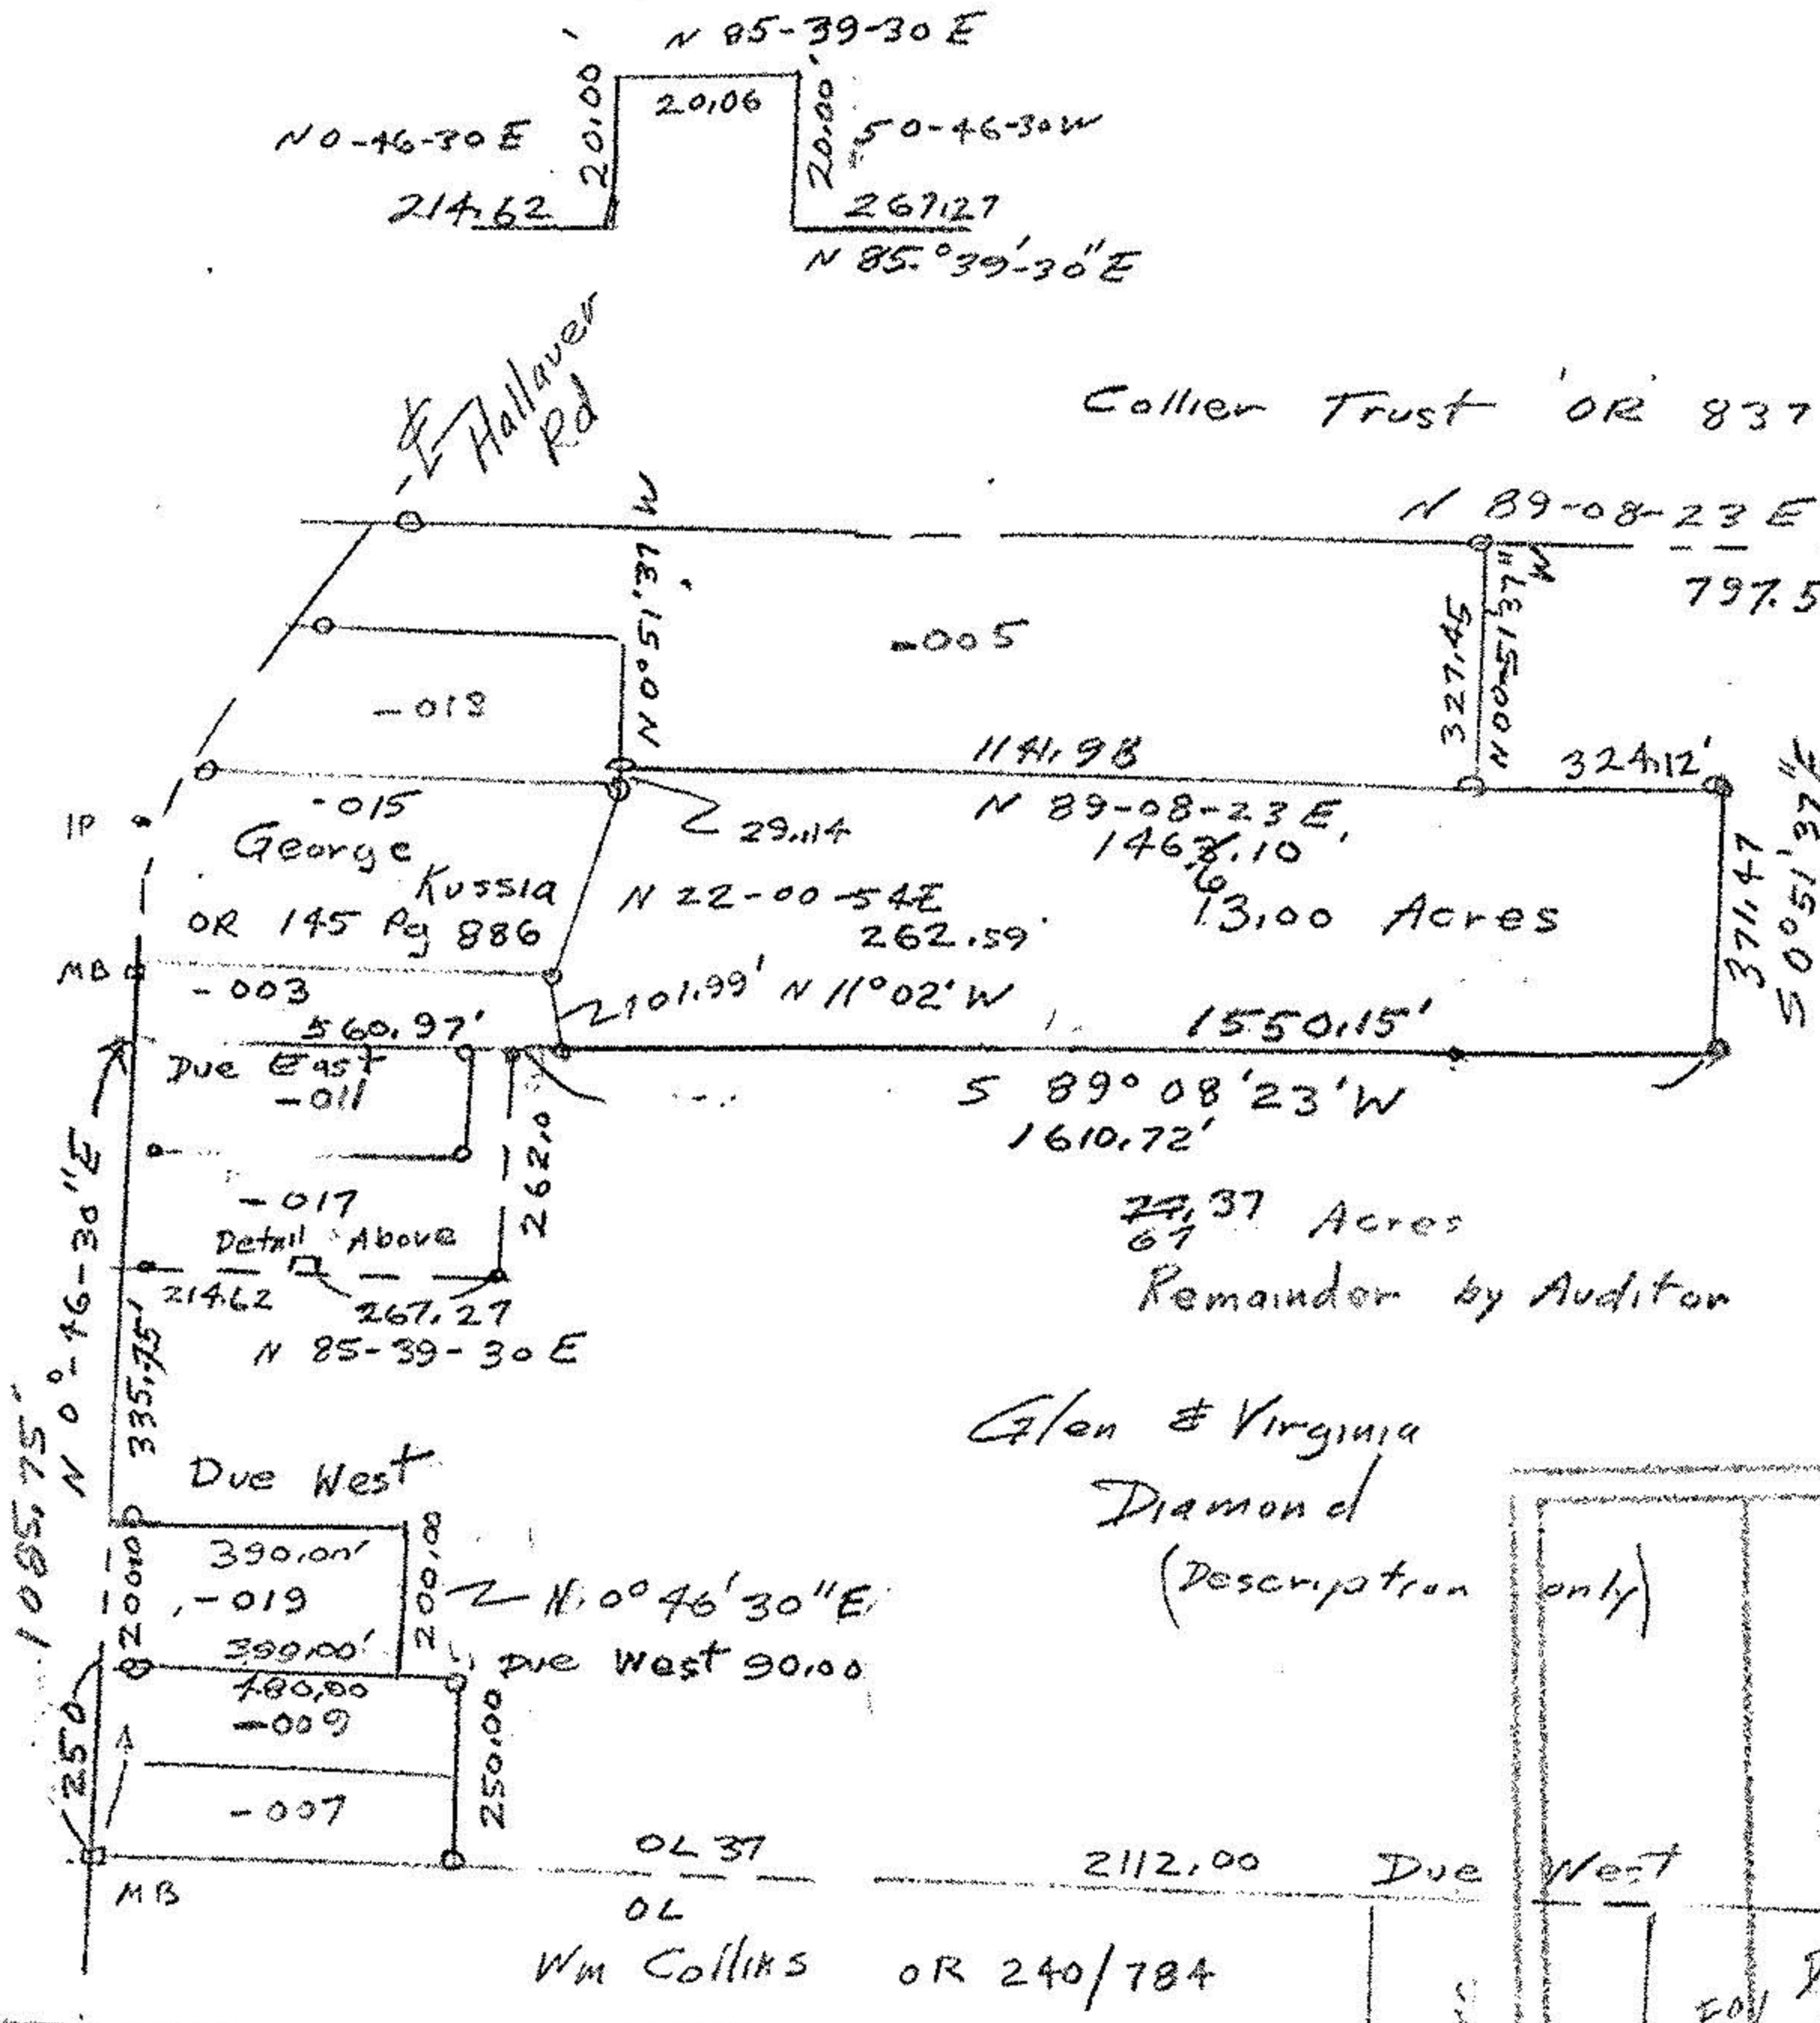 N 85-39-30 E
20.00
20.06
20.00'
N 0-46-30 E
S 0-46-30 W
214.62
267.27
N 85.°39'-30" E
Hallauer
Rd
Collier Trust OR 837
N 89-08-23 E
797.5
N 0°51'37 W
-005
327.45
N 00-51'37" W
-018
1141.98
324.12'
-015
N 89-08-23 E.
IP
29.14
George
Kussia
N 22-00-54E
262.59
13.00 Acres
OR 145 Pg 886
371.47
S 0°51'37"E
MB
-003
101.99' N 11°02' W
560.97'
1550.15'
Due East
-011
S 89°08'23'W
1610.72'
262.0
-017
Detail Above
37 Acres
67
Remainder by Auditor
214.62
267.27
N 85-39-30 E
N 0°-46-30"E
335.75'
1085.75'
Glen & Virginia
Diamond
(Description only)
Due West
390.00'
200.0
200.0
-019
N. 0°46'30"E.
390.00'
Due West 90.00
480.00
-009
250
250.00
-007
OL 37
2112.00 Due West
MB
OL
Wm Collins OR 240/784